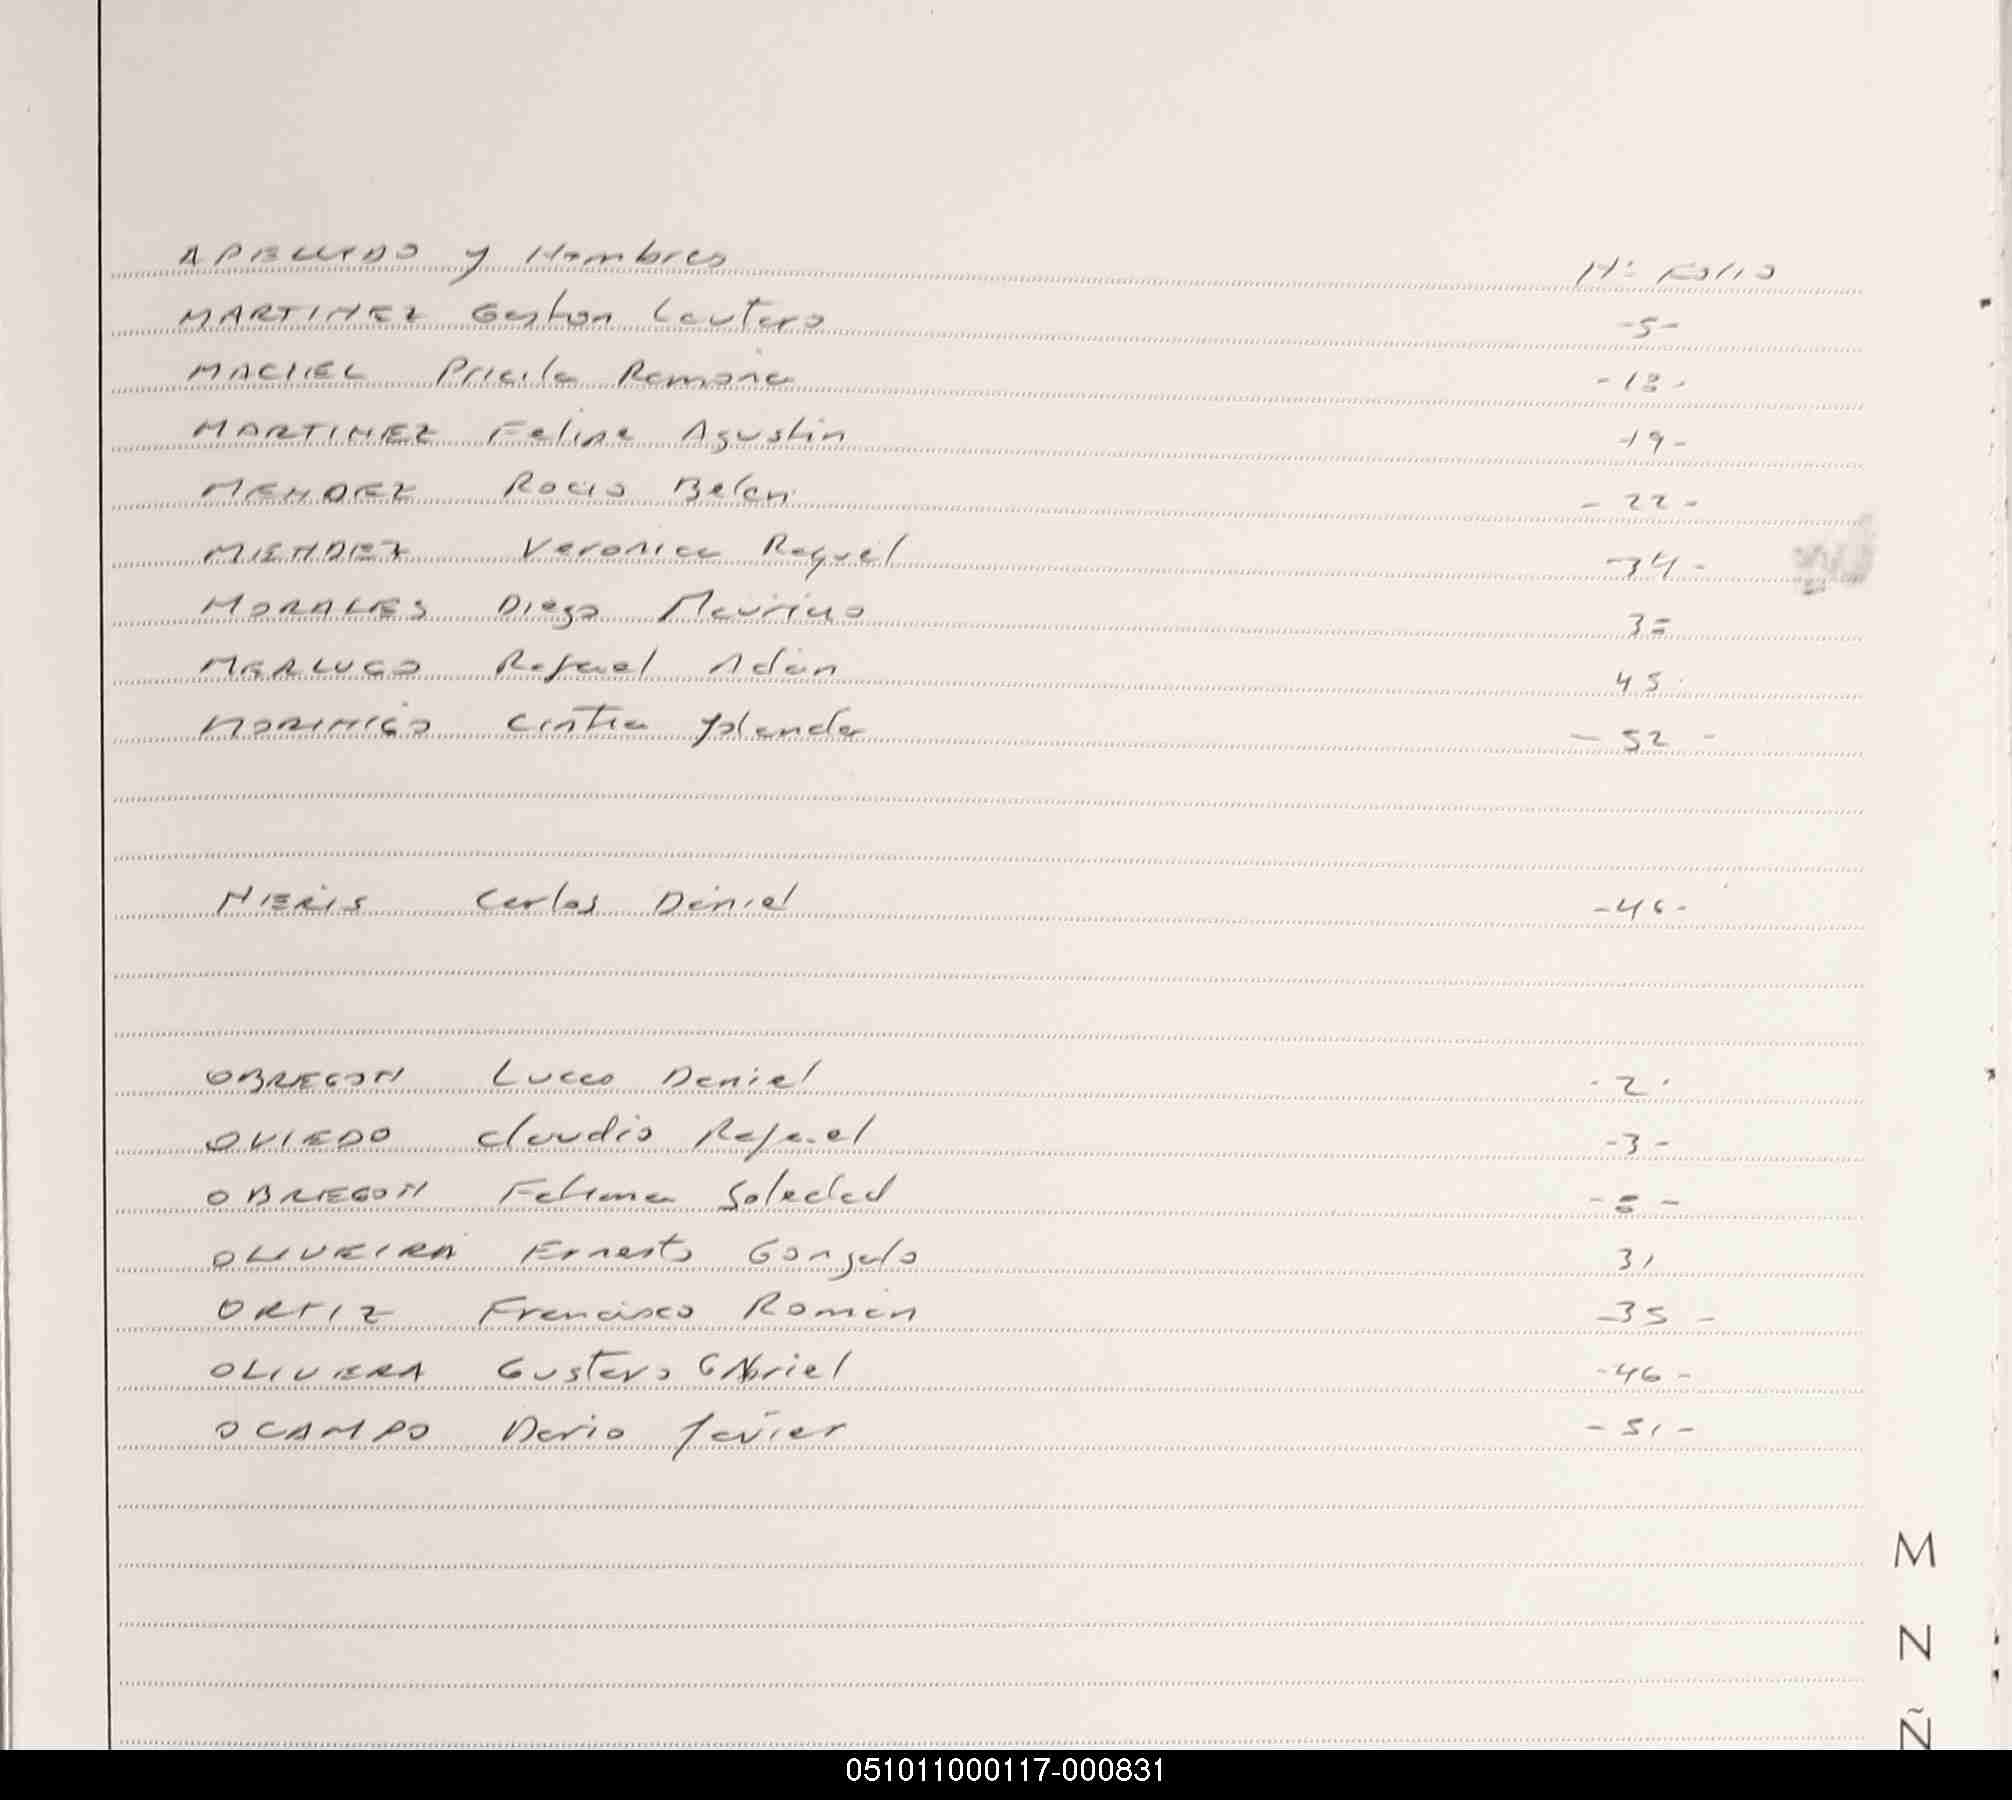 APELLIDO y Nombres Nº Folio
MARTINEZ Gaston Lautaro -5-
MACIEL Pricila Romina -18-
MARTINEZ Felipe Agustin -19-
MENDEZ Rocio Belen -22-
MENDEZ Veronica Raquel -34-
MORALES Diego Mauricio
MERLUGO Rafael Adán 45
MORINIGO Cintia Yolanda -52-
NERIS Carlos Daniel -46-
OBREGON Lucas Daniel -2-
OVIEDO Claudio Rafael -3-
OBREGON Fatima Soledad -8-
OLIVEIRA Ernesto Gonzalo 31
ORTIZ Francisco Roman -35-
OLIVERA Gustavo GAbriel -46-
OCAMPO Dario Javier -51-
M
N
Ñ
051011000117-000831